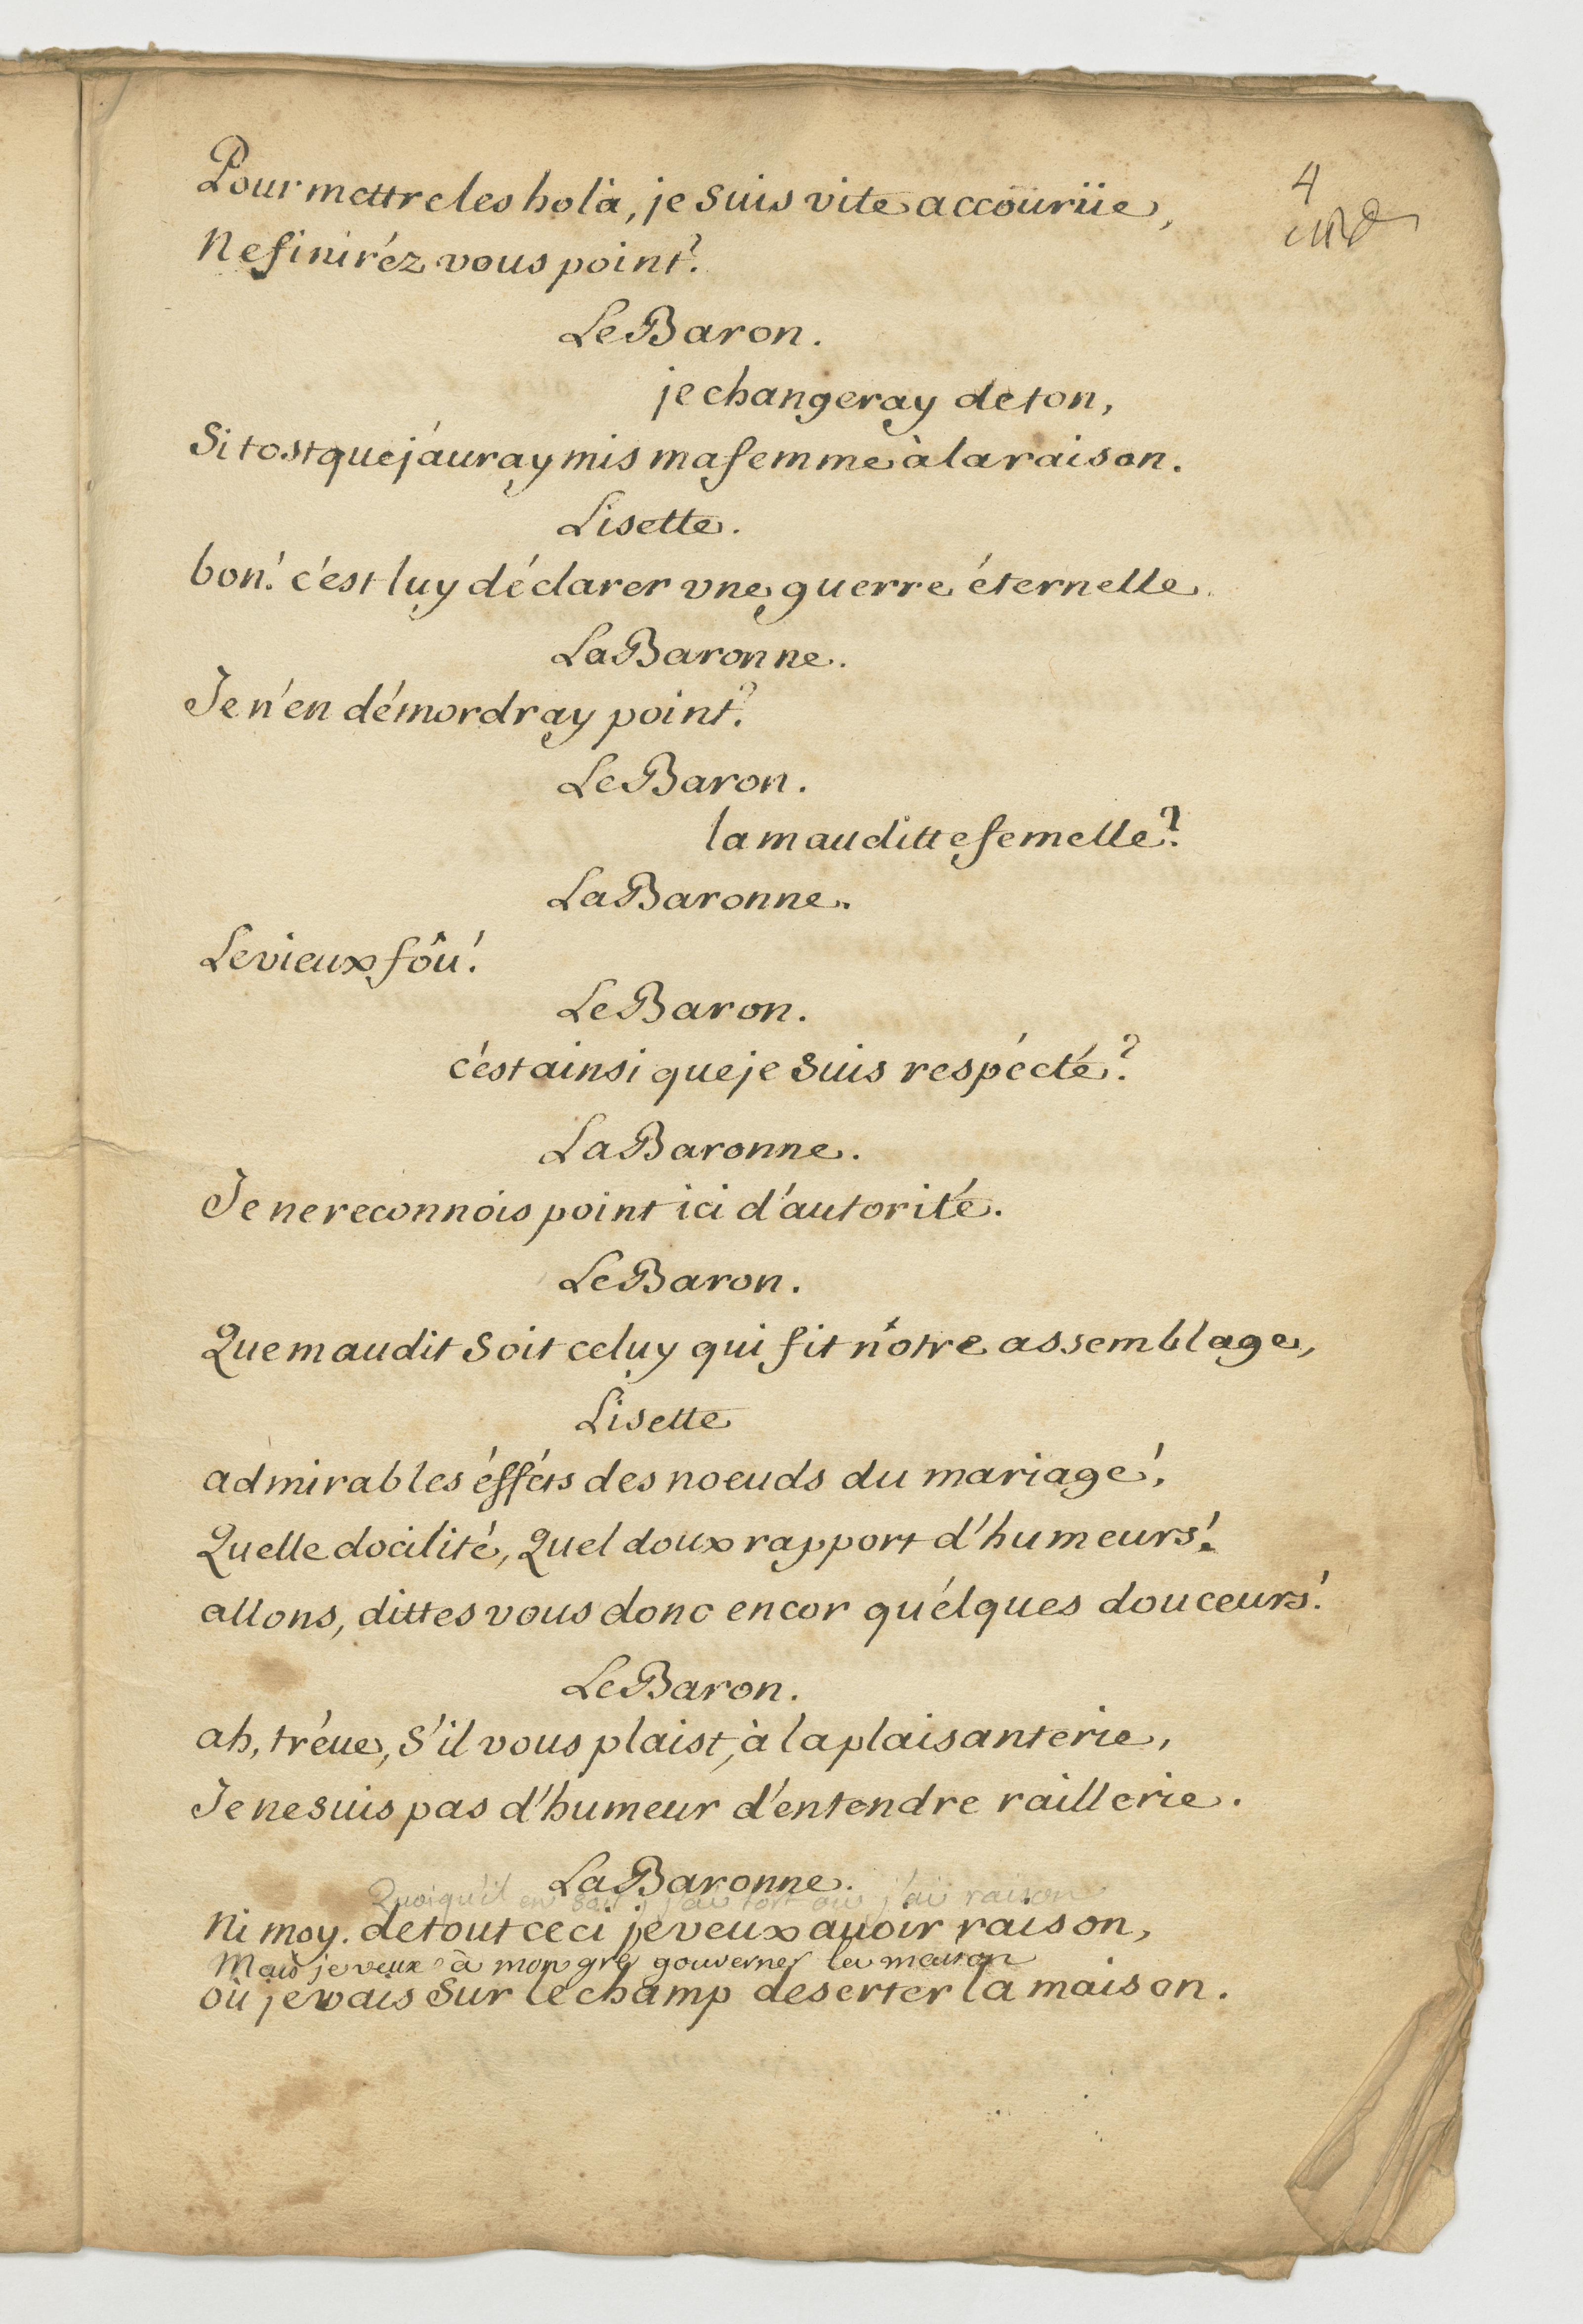 4
Pour mettre les hola, je suis vite accouruë,
Ne finiréz vous point?
Le Baron.
je changeray de ton,
Si tost que j'auray mis ma femme à la raison.
Lisette.
bon! c'est luy déclarer vne guerre éternelle.
La Baronne.
Je n'en démordray point?
Le Baron.
la mauditte femelle?
La Baronne.
Le vieux fôu!
Le Baron.
c'est ainsi que je suis respécté?
La Baronne.
Je ne reconnois point ici d'autorité.
Le Baron.
Que maudit soit celuy qui fit nôtre assemblage,
Lisette
admirables éfféts des noeuds du mariage!
Quelle docilité, Quel doux rapport d'humeurs!
allons, dittes vous donc encor quélques douceurs!
Le Baron.
ah, tréue, s'il vous plaist, à la plaisanterie,
Je ne suis pas d'humeur d'entendre raillerie.
La Baronne.
Quoiqu'il en soit, j'ai tort ou j'ai raison
Ni moy. de tout ceci je veux auoir raison,
Mais je veux à mon gré gouverner la maison
où je vais sur le champ deserter la maison.